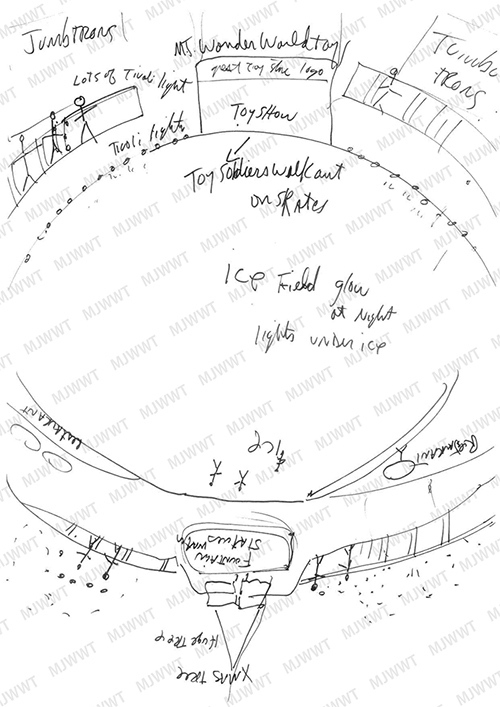 Jumbtrons
MJ. Wonder World toy
great toy store logo
Toy Show
Jumbo
trons
Lots of Tivoli light
Tivoli lights
Toy Soldiers walk out
on skates
Ice Field glow
at Night
lights under ice
Restaurant
Restaurant
ice
Fountain
Statues with
Huge tree
Xmas tree
MJWWT